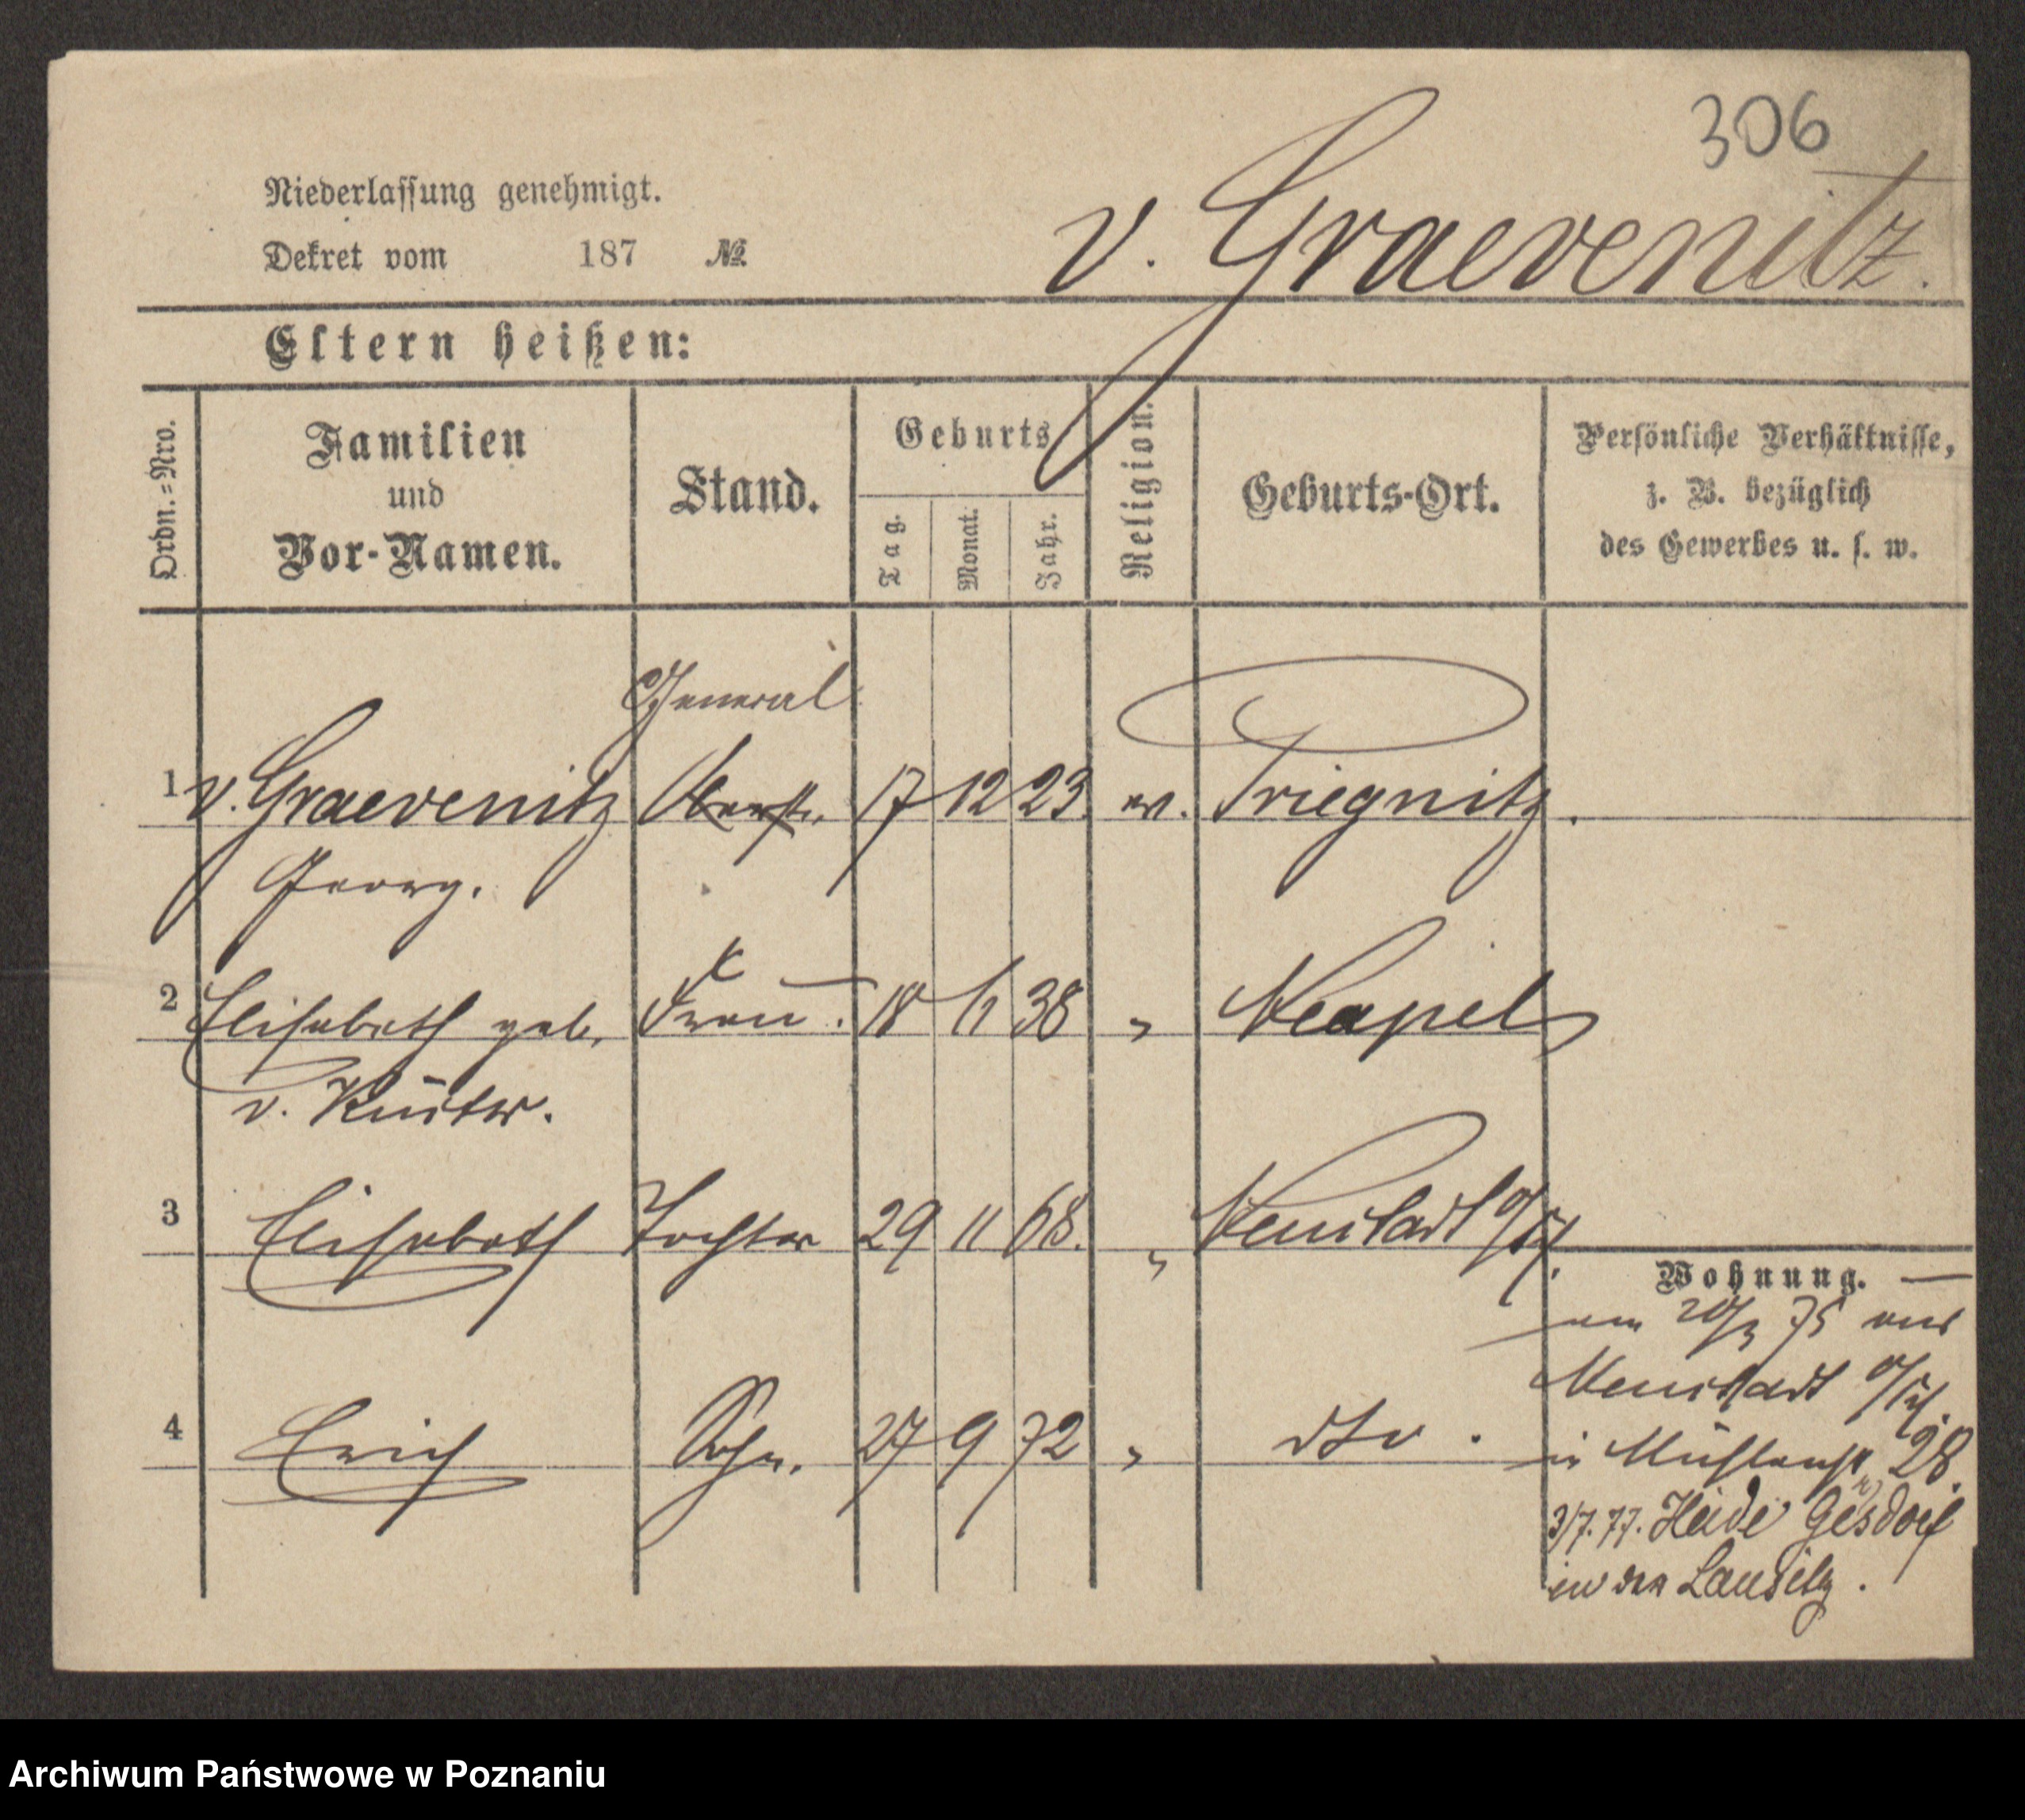 306
Niederlassung genehmigt.
Dekret vom 187 №
v. Graevenitz.
Eltern heißen:
Ordn.=Nro.
Familien
und
Vor-Namen.
Stand.
Geburts
Tag.
Monat.
Jahr.
Religion.
Geburts-Ort.
Persönliche Verhältnisse,
z. B. bezüglich
des Gewerbes u. s. w.
General
1 v. Graevenitz Oberst. 17 12 23. ev. Priegnitz.
Georg.
2 Elisabeth geb. Frau. 18 38 " Neapel
v. Küster.
3 Elisabeth Tochter 29 11 68. " Neustadt o/Sch.
4 Erich Sohn. 27 9 72 " dto.
Wohnung. —
am 20/3 75 aus
Neustadt o/Sch.
in Mühlenstr 28.
3/7. 77. Heide
in der Lausitz.
Archiwum Państwowe w Poznaniu